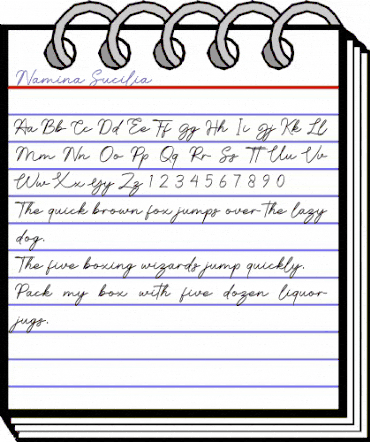 Namina Sucilia
Aa Bb Cc Dd Ee Ff Gg Hh Ii Jj Kk Ll
Mm Nn Oo Pp Qq Rr Ss Tt Uu Vv
Ww Xx Yy Zz 1 2 3 4 5 6 7 8 9 0
The quick brown fox jumps over the lazy
dog.
The five boxing wizards jump quickly.
Pack my box with five dozen liquor
jugs.